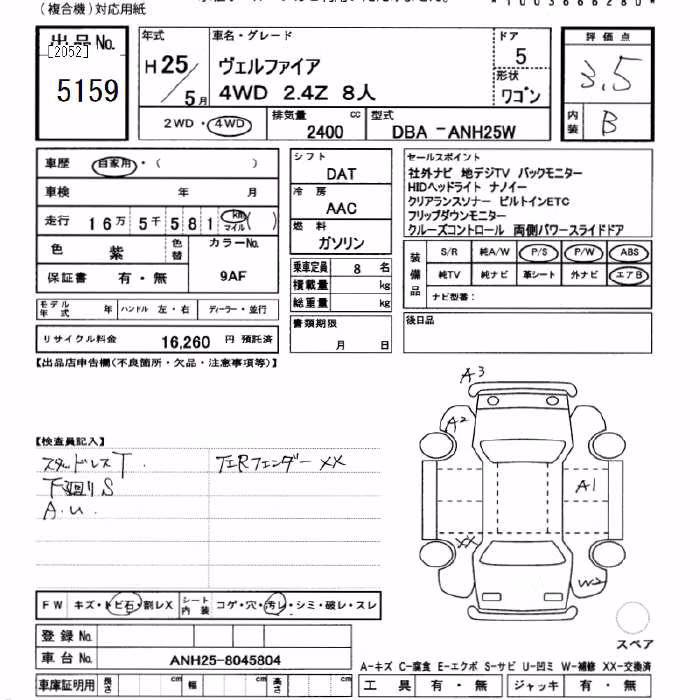 (複合機)対応用紙
*1003666280*
出品No.
[2052]
5159
年式
H25/5月
車名・グレード
ヴェルファイア
4WD 2.4Z 8人
ドア
5
形状
ワゴン
評価点
3.5
内装
B
2WD・4WD
排気量 cc
2400
型式
DBA -ANH25W
車歴 自家用・( )
車検 年 月
走行 16万 5千 581 km マイル ( )
色 紫
色替
カラーNo.
9AF
保証書 有・無
モデル年式 年 ハンドル 左・右 ディーラー・並行
リサイクル料金 16,260 円 預託済
シフト
DAT
冷房
AAC
燃料
ガソリン
乗車定員 8 名
積載量 kg
総重量 kg
書類期限
月 日
セールスポイント
社外ナビ 地デジTV バックモニター
HIDヘッドライト ナノイー
クリアランスソナー ビルトインETC
フリップダウンモニター
クルーズコントロール 両側パワースライドドア
装備品
S/R 純A/W P/S P/W ABS
純TV 純ナビ 革シート 外ナビ エアB
ナビ型番:
後日品
【出品店申告欄(不良箇所・欠品・注意事項等)】
【検査員記入】
スタッドレスT.
下廻りS
A.U.
左Rフェンダー XX
A3
A2
A1
XX
W2
スペア
FW キズ・トビ石・割レX
シート内装 コゲ・穴・汚レ・シミ・破レ・スレ
登録No.
車台No. ANH25-8045804
車庫証明用 長さ cm 幅 cm 高さ cm
A-キズ C-腐食 E-エクボ S-サビ U-凹ミ W-補修 XX-交換済
工具 有・無 ジャッキ 有・無